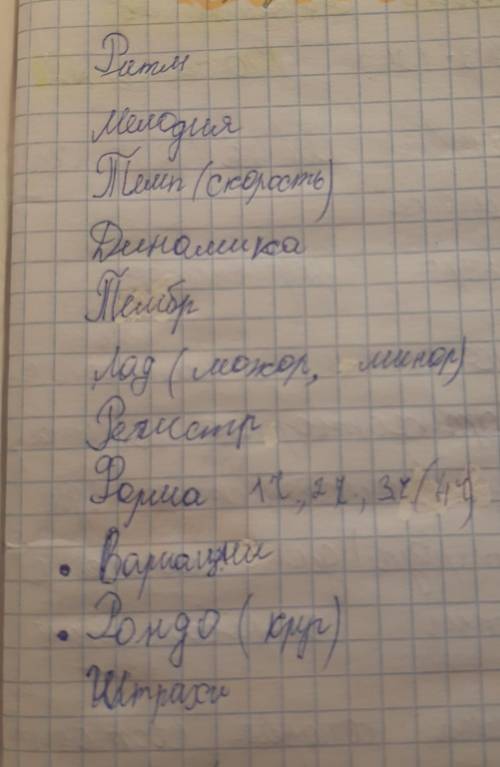 Ритм
Мелодия
Темп (скорость)
Динамика
Тембр
Лад (мажор, минор)
Регистр
Форма 1ч, 2ч, 3ч (4ч)
• Вариации
• Рондо (круг)
Штрихи